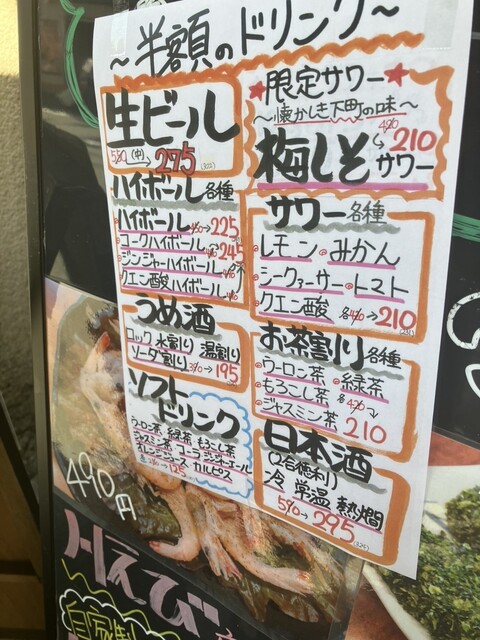 ～半額のドリンク～
生ビール
580(中)→275
ハイボール各種
ハイボール 450→225
コークハイボール 245
ジンジャーハイボール
クエン酸ハイボール
うめ酒
ロック 水割り 温割り
ソーダ割り 390→195
ソフト
ドリンク
ウーロン茶 緑茶 もろこし茶
ジャスミン茶 コーラ ジンジャーエール
オレンジジュース カルピス
250→125
★限定サワー★
～懐かしき下町の味～
420→210
梅しそサワー
サワー各種
レモン・みかん
シークァーサー・トマト
クエン酸 各420→210
お茶割り各種
ウーロン茶 緑茶
もろこし茶 各420
ジャスミン茶 210
日本酒
(2合徳利)
冷 常温 熱燗
590→295
490円
川えび
自家製